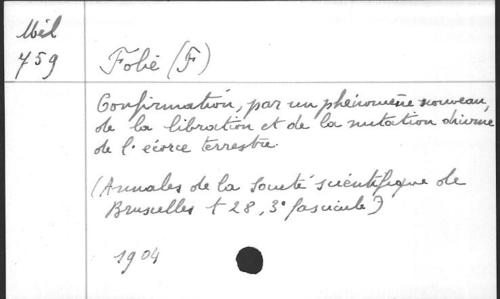 Mél
759
Folie (F)
Confirmation, par un phénomène nouveau,
de la libration et de la nutation diurne
de l'écorce terrestre.
(Annales de la Société scientifique de
Bruxelles t 28, 3° fascicule)
1904